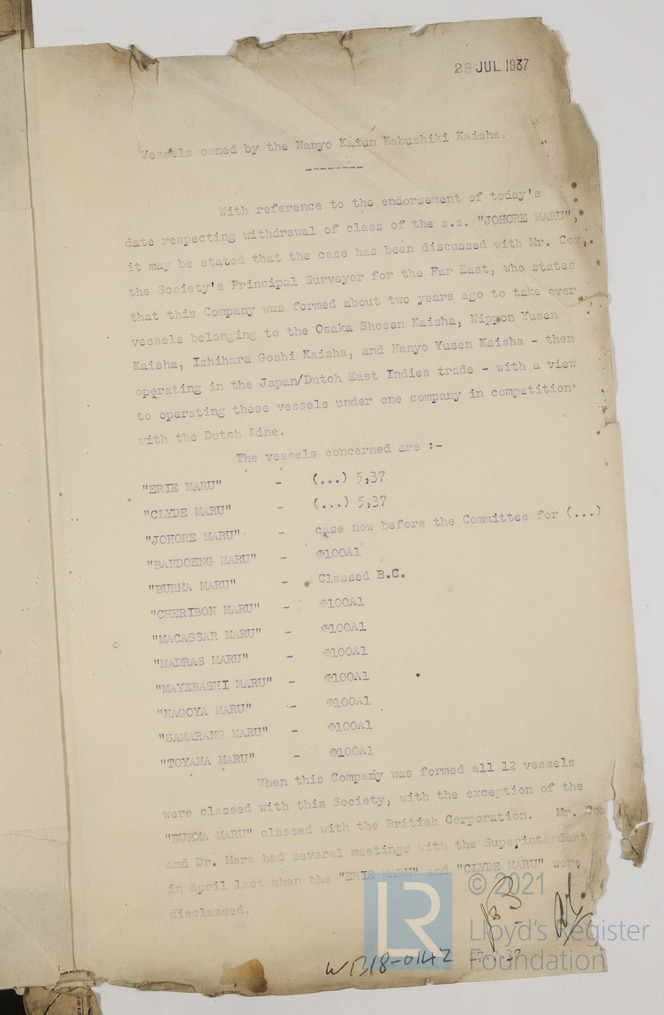 28 JUL 1937
Vessels owned by the Nanyo Kaiun Kabushiki Kaisha.
--------
With reference to the endorsement of today's
date respecting withdrawal of class of the s.s. "JOHORE MARU",
it may be stated that the case has been discussed with Mr. Cox,
the Society's Principal Surveyor for the Far East, who states
that this Company was formed about two years ago to take over
vessels belonging to the Osaka Shosen Kaisha, Nippon Yusen
Kaisha, Ishihara Goshi Kaisha, and Nanyo Yusen Kaisha - then
operating in the Japan/Dutch East Indies trade - with a view
to operating these vessels under one company in competition
with the Dutch Line.
The vessels concerned are :-
"ERIE MARU" - (...) 5,37
"CLYDE MARU" - (...) 5,37
"JOHORE MARU" - case now before the Committee for (...)
"BANDOENG MARU" - ✠100A1
"BURMA MARU" - Classed B.C.
"CHERIBON MARU" - ✠100A1
"MACASSAR MARU" - ✠100A1
"MADRAS MARU" - ✠100A1
"MAYEBASHI MARU" - ✠100A1
"NAGOYA MARU" - ✠100A1
"SAMARANG MARU" - ✠100A1
"TOYAMA MARU" - ✠100A1
When this Company was formed all 12 vessels
were classed with this Society, with the exception of the
"BURMA MARU" classed with the British Corporation. Mr. Cox
and Dr. Mera had several meetings with the Superintendent
in April last when the "ERIE MARU" and "CLYDE MARU" were
disclassed.
W1318-0142
LR
© 2021
Lloyd's Register
Foundation